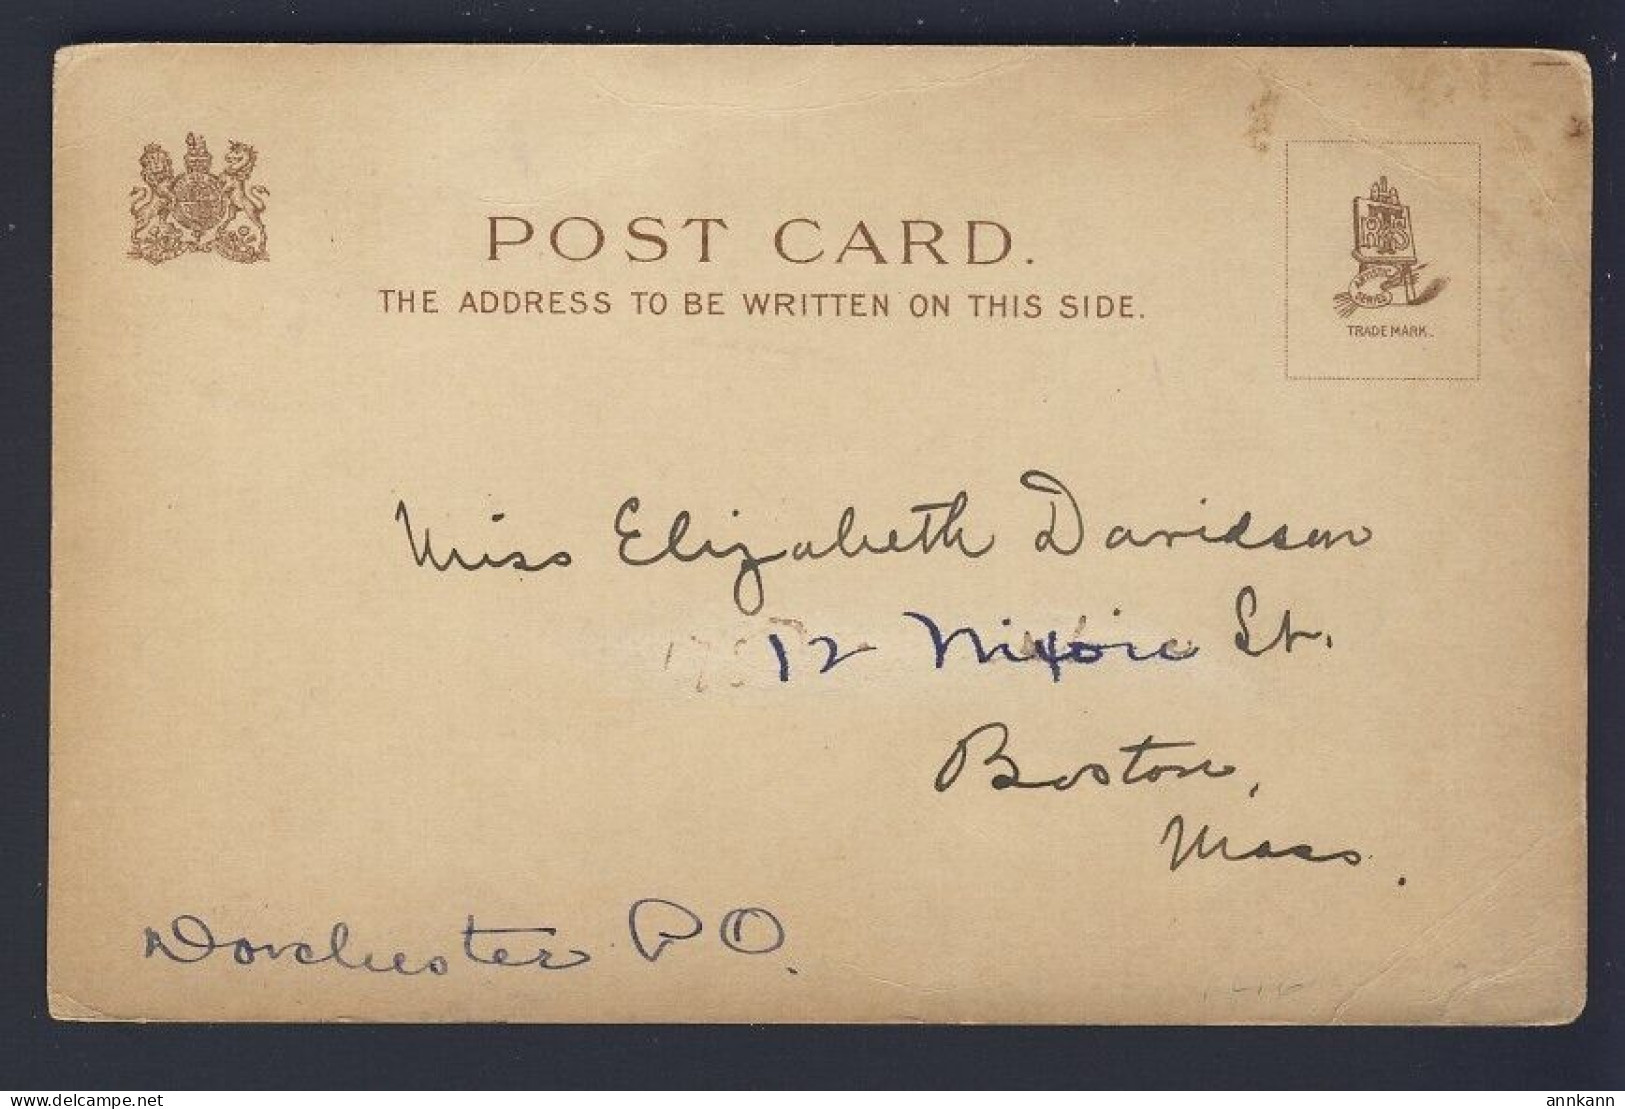 POST CARD.
THE ADDRESS TO BE WRITTEN ON THIS SIDE.
ARTISTIC
SERIES
TRADE MARK.
Miss Elizabeth Davidson
12 St.
Boston,
Mass.
Dorchester P O.
annkann
delcampe.net